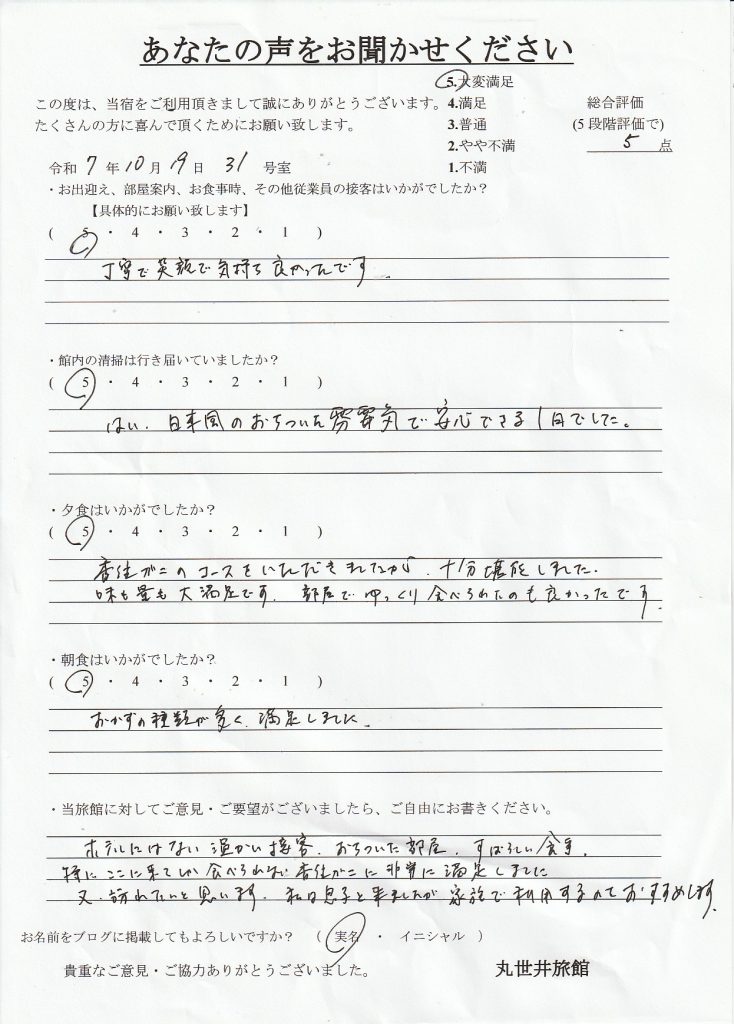 あなたの声をお聞かせください
5.大変満足
この度は、当宿をご利用頂きまして誠にありがとうございます。 4.満足 総合評価
たくさんの方に喜んで頂くためにお願い致します。 3.普通 (5段階評価で)
2.やや不満 5 点
令和 7 年 10 月 19 日 31 号室 1.不満
・お出迎え、部屋案内、お食事時、その他従業員の接客はいかがでしたか?
【具体的にお願い致します】
( 5 ・ 4 ・ 3 ・ 2 ・ 1 )
丁寧で笑顔で気持ち良かったです.
・館内の清掃は行き届いていましたか?
( 5 ・ 4 ・ 3 ・ 2 ・ 1 )
はい. 日本風のおちついた雰囲気で安心できる1日でした。
・夕食はいかがでしたか?
( 5 ・ 4 ・ 3 ・ 2 ・ 1 )
香住がにのコースをいただきましたが、十分堪能しました.
味も量も大満足です. 部屋でゆっくり食べられたのも良かったです.
・朝食はいかがでしたか?
( 5 ・ 4 ・ 3 ・ 2 ・ 1 )
おかずの種類が多く、満足しました.
・当旅館に対してご意見・ご要望がございましたら、ご自由にお書きください。
ホテルにはない温かい接客. おちついた部屋. すばらしい食事.
特にここに来てしか食べられない香住がにに非常に満足しました
又、訪れたいと思います. 私は息子と来ましたが家族で利用するのもおすすめします.
お名前をブログに掲載してもよろしいですか? ( 実名 ・ イニシャル )
貴重なご意見・ご協力ありがとうございました。 丸世井旅館